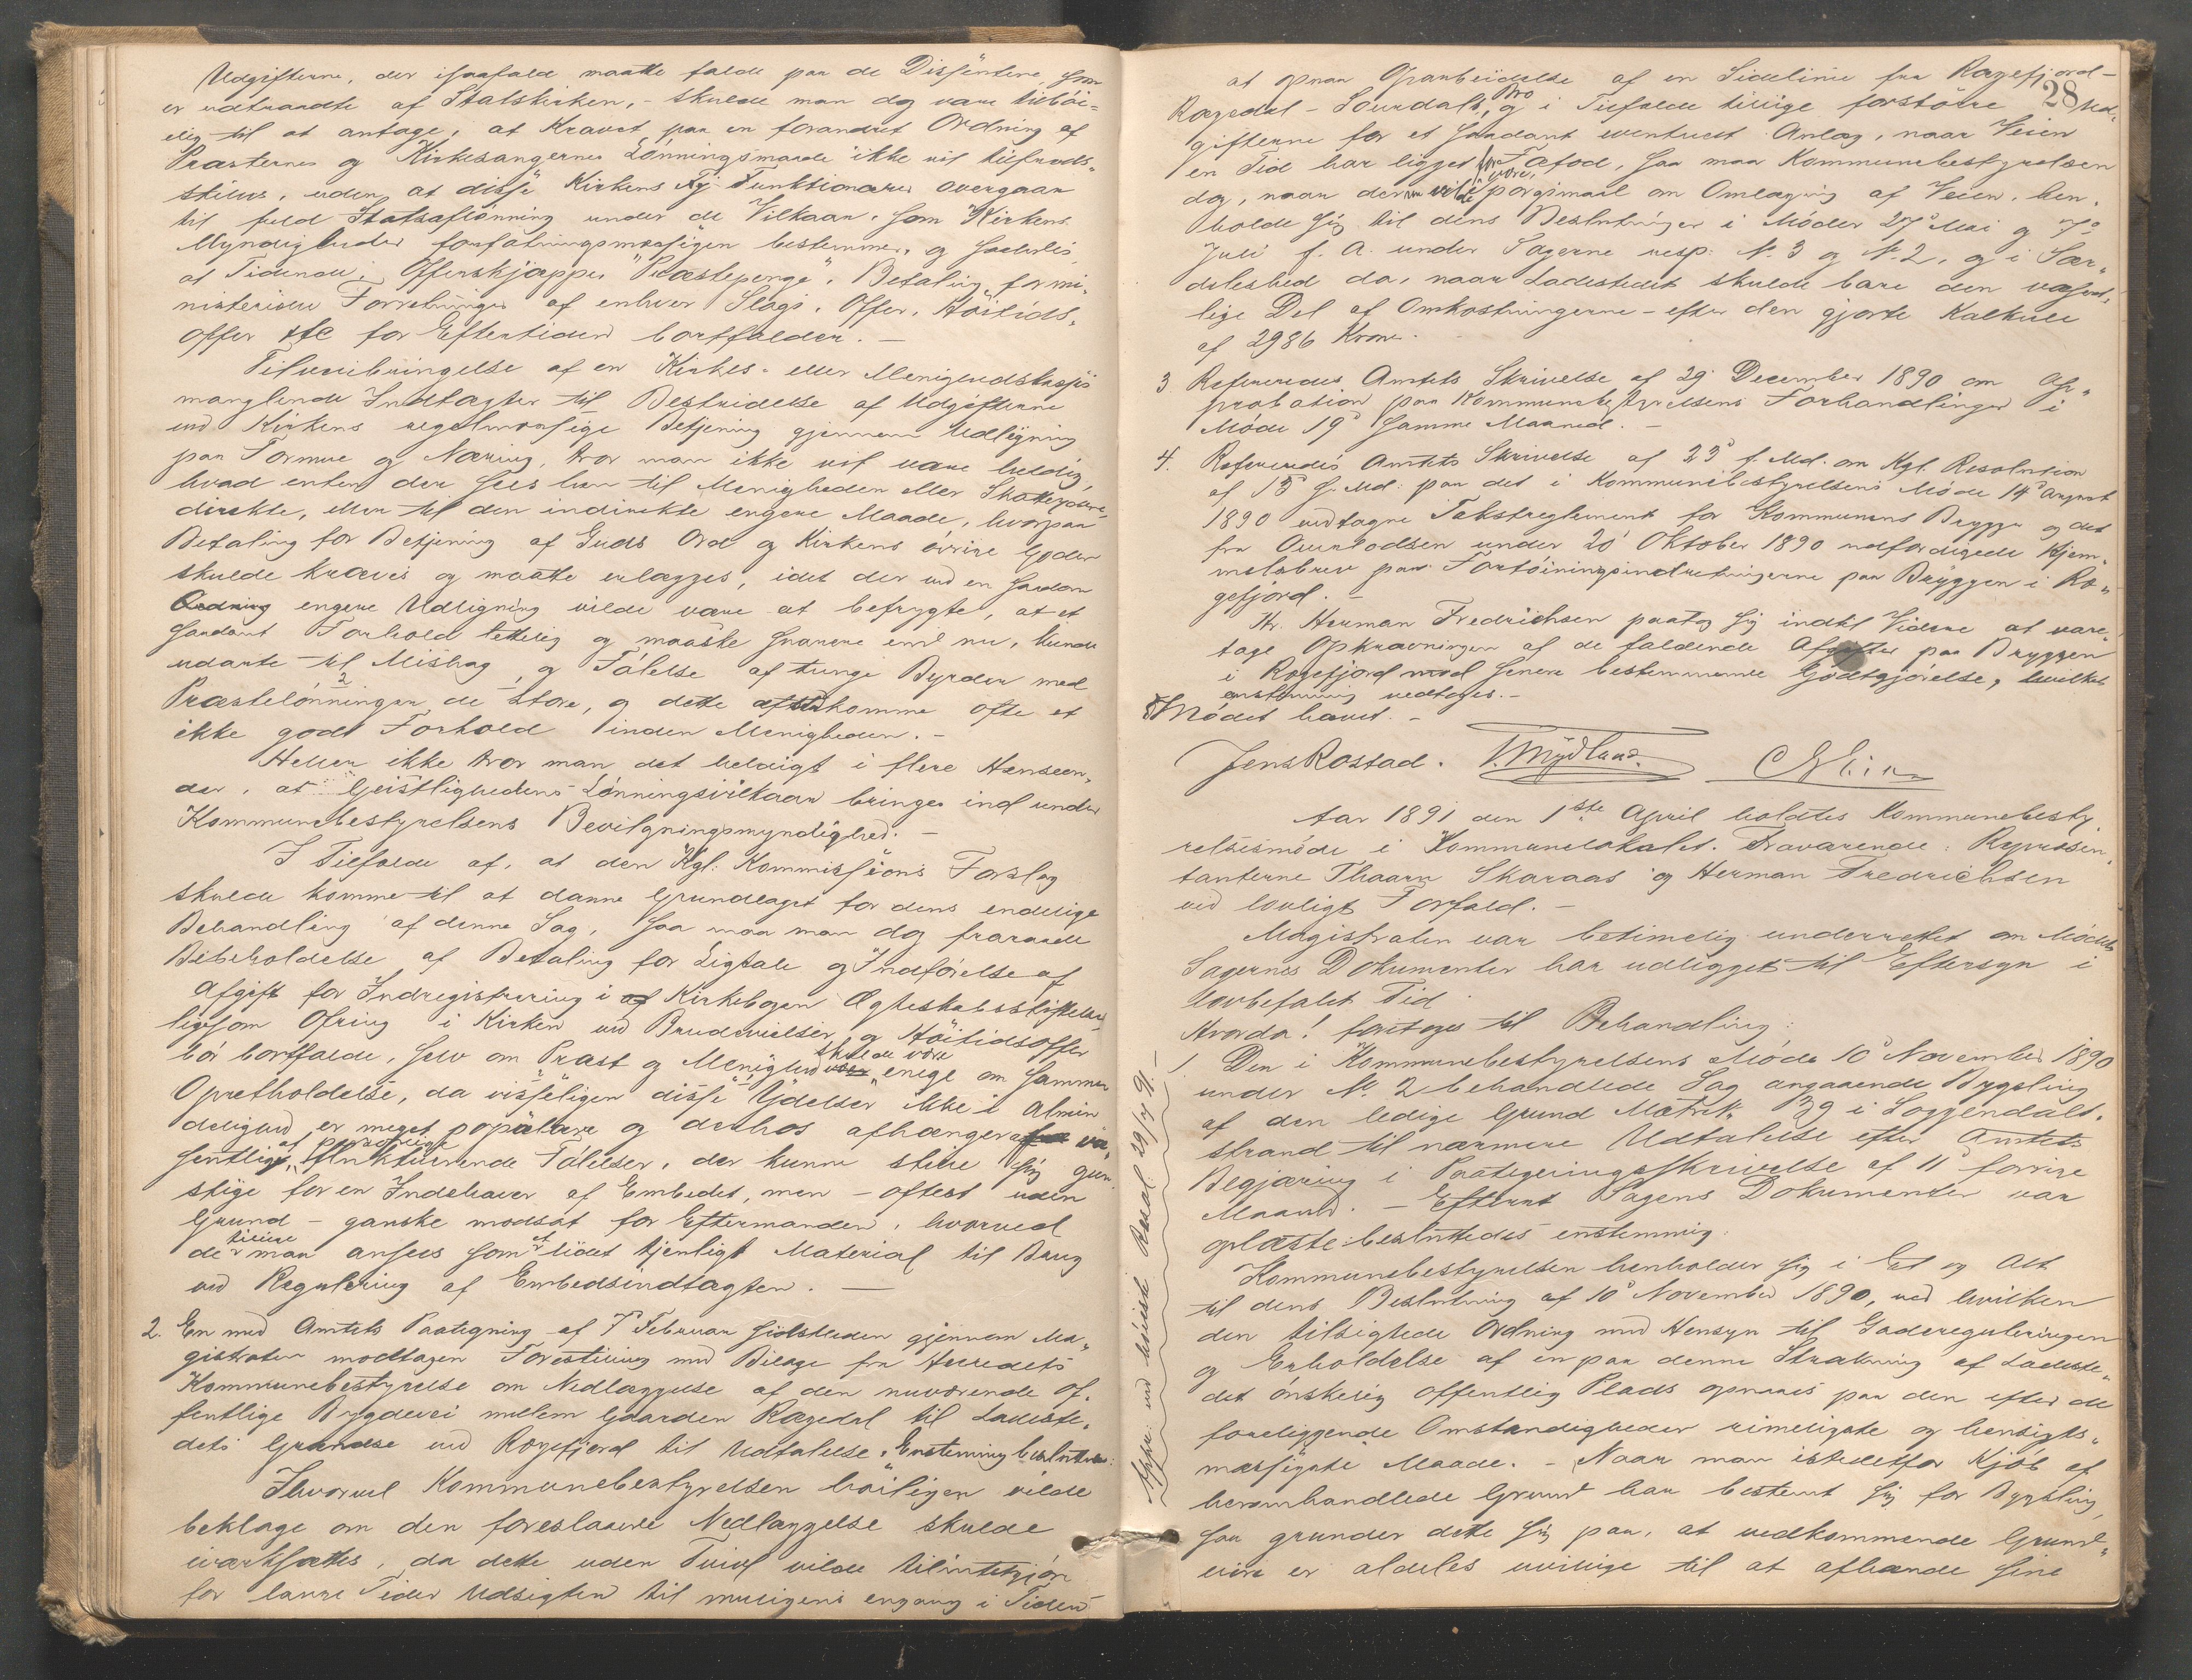 Udgifterne, der isaafald maatte falde paa de Dissentere som
er udtraadte af Statskirken, - skulde man dog være tilbøi=
elig til at antage, at Kravet paa en forandret Ordning af
Præsternes og Kirkesangernes Lønningsmaade ikke vil tilfreds-
stilles, uden at disse Kirkens Funktionærer overgaar
til fuld Statsaflønning under de Vilkaar, som Kirkens
Myndigheder forfatningsmæssigen bestemmer, og saaledes
at Tiende, Offerskjæppe, "Præstepenge", Betaling for mi-
nisterielle Forretninger af enhver Slags, Offer, Høitids-
offer etc for Eftertiden bortfalder. -
Tilveiebringelse af en Kirkes- eller Menighedskasses
manglende Indtægter til Bestridelse af Udgifterne
ved Kirkens regelmæssige Betjening gjennem Udligning
paa Formue og Næring, tror man ikke vil være heldig,
hvad enten der sees hen til Menigheden eller Skatteyderne
direkte, eller til den indirekte engere Maade, hvorpaa
Betaling for Betjening af Guds Ord og Kirkens øvrige Goder
skulde kræves og maatte erlægges, idet der ved en saadan
Ordning engere Udligning vilde være at befrygte, at et
saadant Forhold lettelig og maaske snarere end nu, kunde
udarte til Mishag og Følelse af tunge Byrder med
Præstelønninger de store, og dette afstedkomme ofte et
ikke godt Forhold inden Menigheden. -
Heller ikke tror man det heldigt i flere Henseen-
der, at Geistlighedens Lønningsvilkaar bringes ind under
Kommunebestyrelsens Bevilgningsmyndighed. -
I Tilfælde af, at den Kgl: Kommissions Forslag
skulde komme til at danne Grundlaget for dens endelige
Behandling af denne Sag, saa maa man dog fraraade
Bibeholdelse af Betaling for Ligtale og Indførelse af
Afgift for Indregistrering i af Kirkebogen Ægteskabsstiftelser
ligesom Ofring i Kirken ved Brudevielser og Høitidsoffer
bør bortfalde, selv om Præst og Menighed skulde være enige om samme
Opretholdelse, da visseligen disse "Ydelser" ikke i Almin
delighed er meget populære og derhos afhænger væ-
sentligst af personlige fluktuerende Følelser, der kunne stille sig gun-
stige for en Indehaver af Embedet, men - oftest uden
Grund - ganske modsat for Eftermanden, hvorved
de tillige man ansees som et lidet tjenligt Material til Brug
ved Regulering af Embedsindtægten. -
2. En med Amtets Paategning af 7de Februar sidstleden gjennem Ma-
gistraten modtagen Forestilling med Bilage fra Herredets
Kommunebestyrelse om Nedlæggelse af den nuværende of-
fentlige Bygdevei mellem Gaarden Rægedal til Ladeste-
dets Grændse ved Rægefjord til Udtalelse. Enstemmig besluttedes:
Ihvorvel Kommunebestyrelsen høiligen vilde
beklage om den foreslaaede Nedlæggelse skulde
iværksættes, da dette uden Tvivl vilde tilintetgjøre
for lange Tider Udsigten til muligens engang i Tiden
28
at opnaa Oparbeidelse af en Sidelinie fra Rægefjord-
Rægedal - Sourdals bro og i Tilfælde tillige forstørre Ud-
gifterne for et saadant eventuelt Anlæg, naar Veien
en Tid har ligget for Fæfod, saa maa Kommunebestyrelsen
dog, naar der vilde være Spørgsmaal om Omlægning af Veien, hen-
holde sig til dens Beslutninger i Møder 27de Mai og 7de
Juli f. A. under Sagerne resp. No. 3 og No. 2, og i Sær-
deleshed da, naar Ladestedet skulde bære den væsent-
lige Del af Omkostningerne - efter den gjorte Kalkule
af 2986 Kroner. -
3. Refereredes Amtets Skrivelse af 29 December 1890 om Ap-
probation paa Kommunebestyrelsens Forhandlinger i
Møde 19de samme Maaned. -
4. Refereredes Amtets Skrivelse af 23de f. Md. om Kgl. Resolution
af 13 s. Md: paa det i Kommunebestyrelsens Møde 14de August
1890 vedtagne Takstreglement for Kommunens Brygge og det
fra Overlodsen under 20 Oktober 1890 udfærdigede Hjem-
melsbrev paa Fortøiningsindretningerne paa Bryggen i Ræ-
gefjord. -
Hr. Herman Fredrichsen paatog sig indtil Videre at vare-
tage Opkrævningen af de faldende Afgifter paa Bryggen
i Rægefjord mod senere bestemmende Godtgjørelse, hvilket
enstemmig vedtoges. -
Mødet hævet. -
Jens Rostad. T. Mydland.
Aar 1891 den 1ste April holdtes Kommunebesty
relsesmøde i Kommunelokalet. Fraværende: Repræsen-
tanterne Thaarn Skaraas og Herman Fredrichsen
ved lovligt Forfald. -
Magistraten var betimelig underrettet om Mødet.
Sagernes Dokumenter har udligget til Eftersyn i
lovbefalet Tid.
Hvorda! foretoges til Behandling:
1. Den i Kommunebestyrelsens Møde 10de November 1890
under No. 2 behandlede Sag angaaende Bygsling
af den ledige Grund Matrik. No. 39 i Soggendals-
strand til nærmere Udtalelse efter Amtets
Begjæring i Paategningsskrivelse af 11de forrige
Maaned. - Efterat Sagens Dokumenter var
oplæste besluttedes enstemmig:
Kommunebestyrelsen henholder sig i Et og Alt
til dens Beslutning af 10de November 1890, ved hvilken
den tilsigtede Ordning med Hensyn til Gadereguleringen
og Erholdelse af en paa denne Strækning af Ladeste-
det ønskelig offentlig Plads opnaaes paa den efter de
foreliggende Omstændigheder rimeligste og hensigts-
mæssigste Maade. - Naar man istedetfor Kjøb af
heromhandlede Grund har bestemt sig for Bygsling,
saa grunder dette sig paa, at vedkommende Grund-
eiere er aldeles uvillige til at afhænde sine